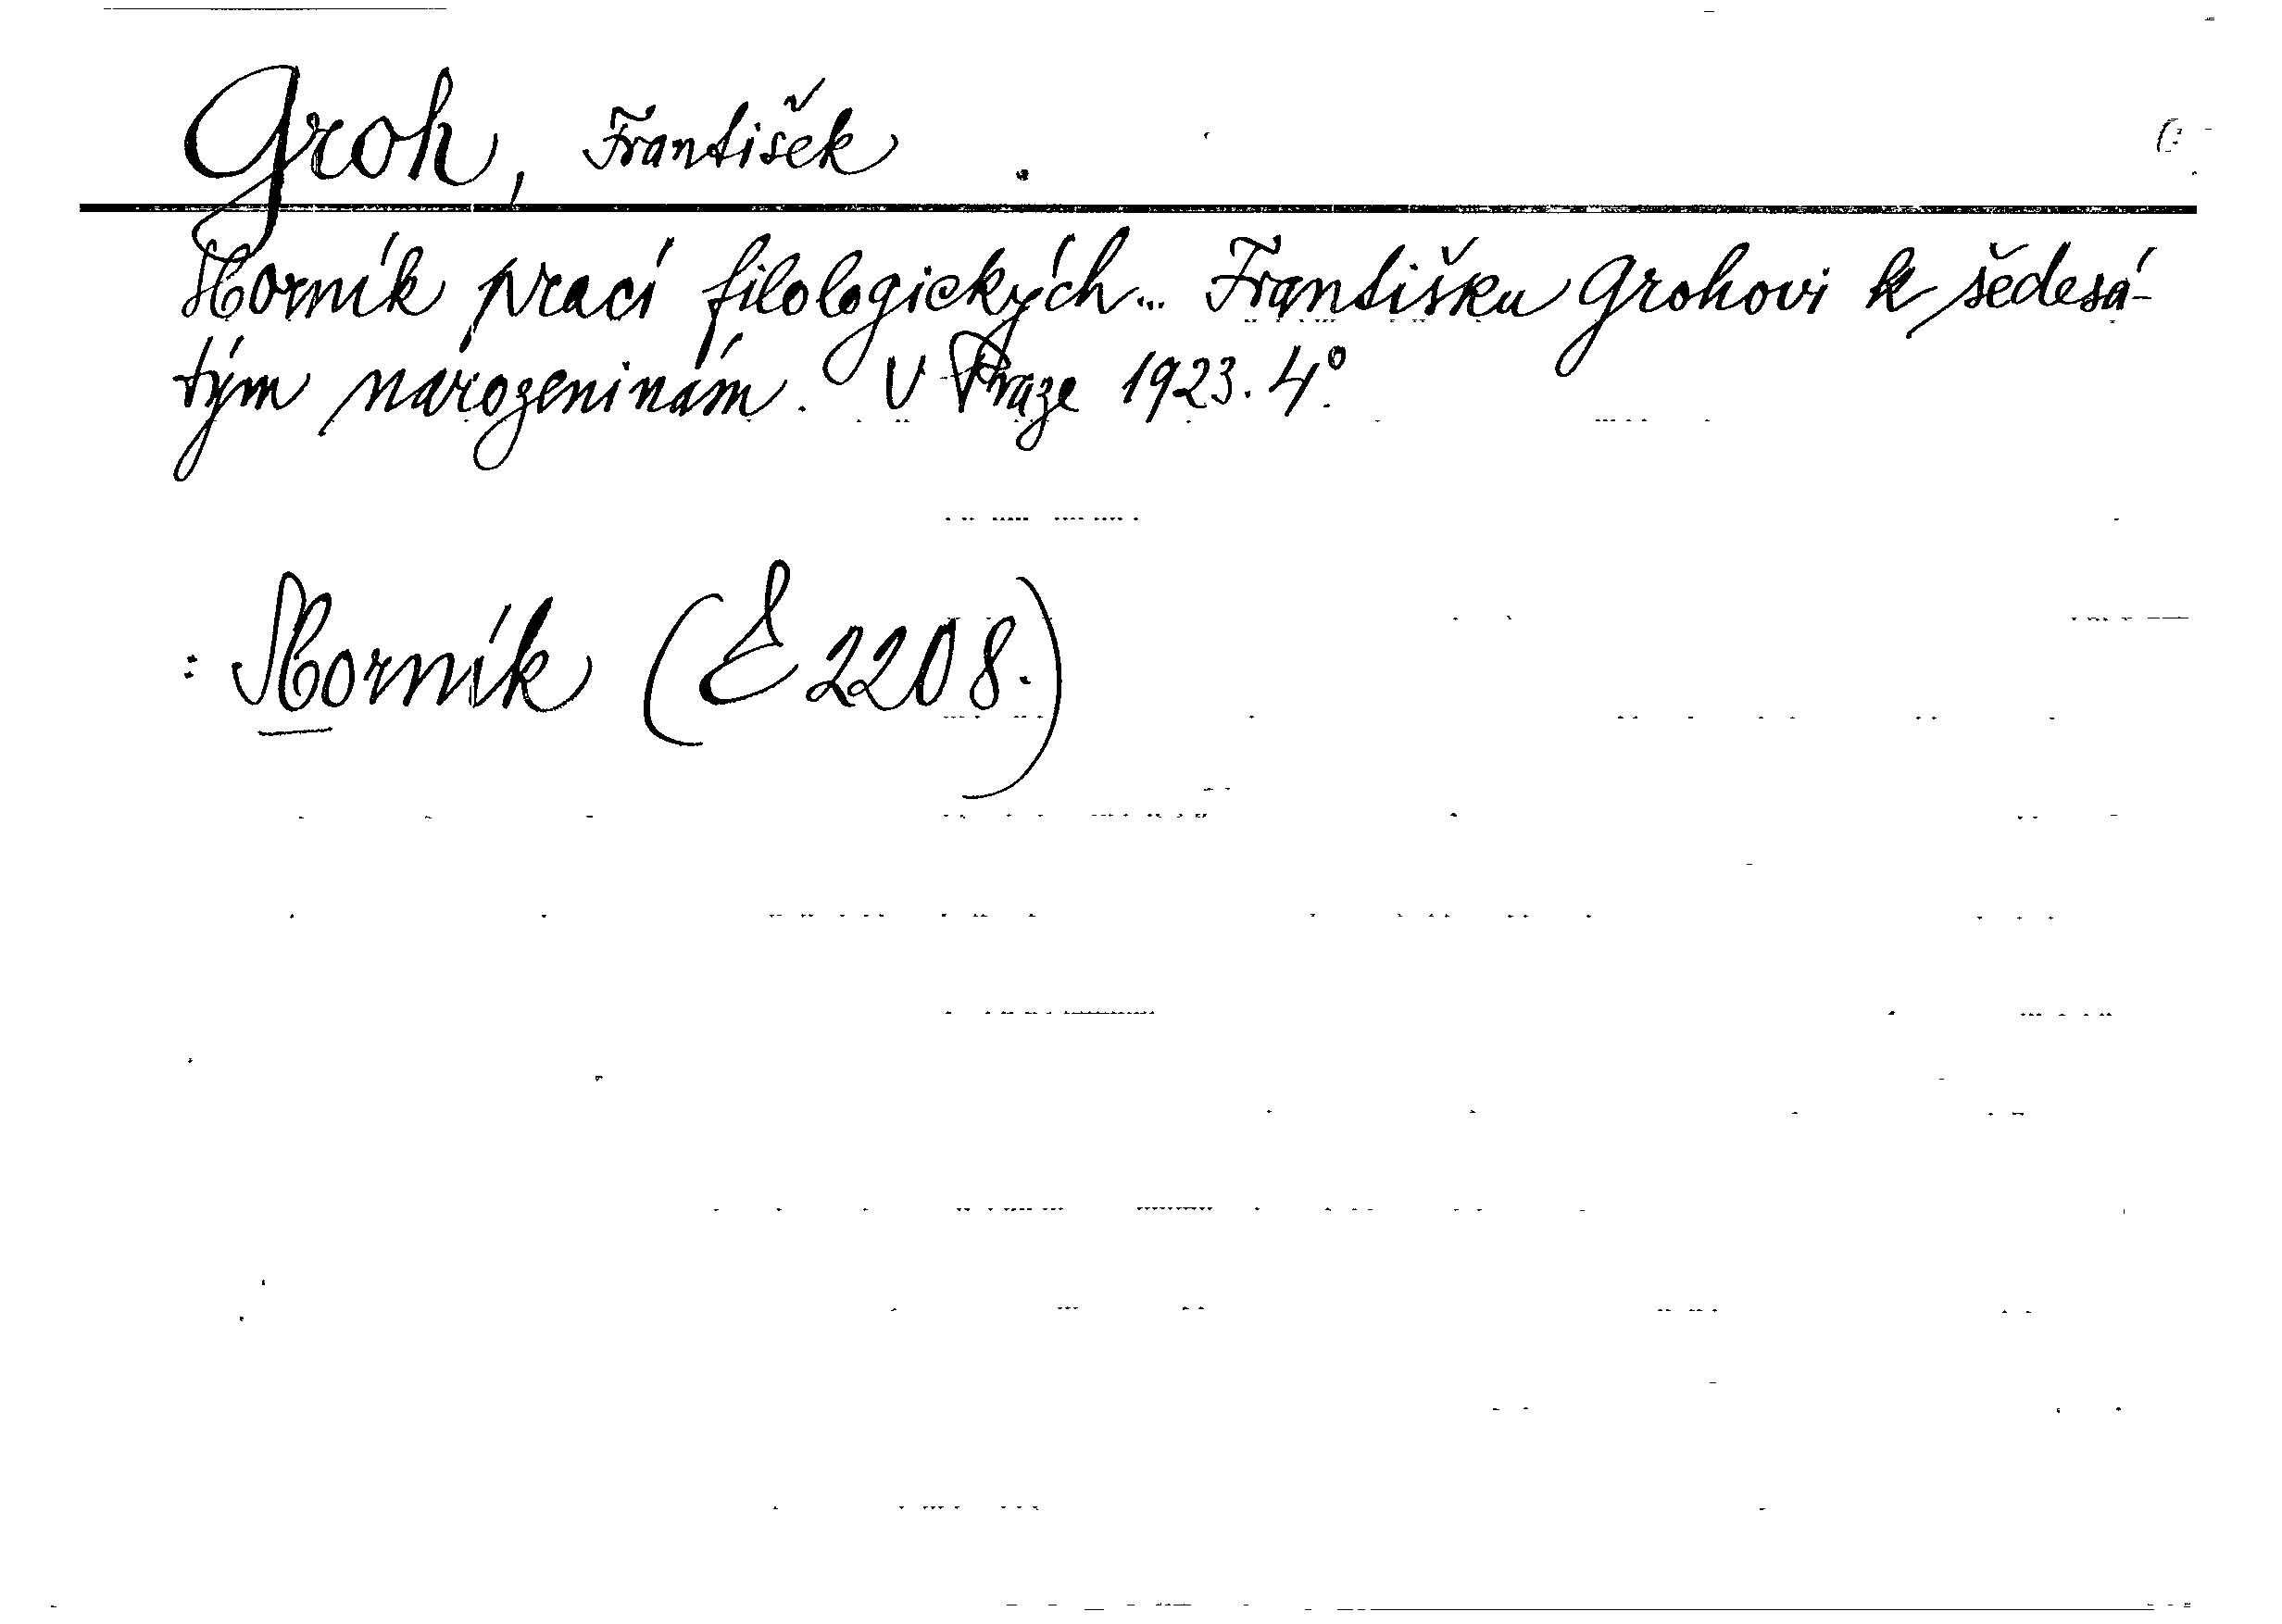 Groh, František
Sborník prací filologických... Františku Grohovi k šedesá-
tým narozeninám. V Praze 1923. 4°.
: Sborník (E 2208.)